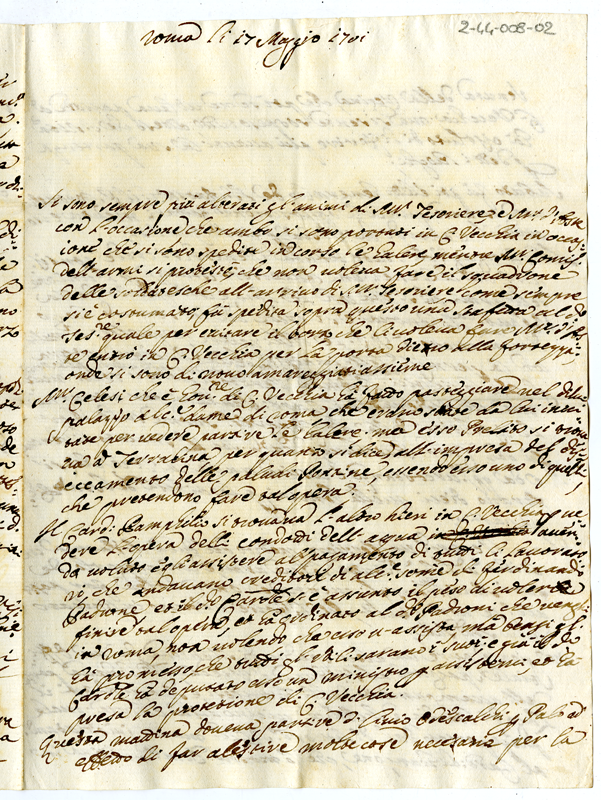 2-44-008-02
Roma li 17 Maggio 1701
Si sono sempre più alterati gl'animi di Mr. Tesoriere, e Mr. d'Este
con l'occasione che ambi si sono portati in C. Vecchia in occas
ione che si sono spedite in corso le Galere, mentre Mr. Comiss.
dell'armi si protestò che non voleva fare il squadrone
delle soldatesche all'arrivo di Mr. Tesoriere come sempre
si è costumato, fù spedita sopra questo una staffetta al
quale per evitare il che li voleva fare Mr. d'Es
te entrò in C. Vecchia per la porta dietro alla fortezza
onde si sono di novo amareggiati assieme
Mr. Celesi che è Gov.re de C. Vecchia fà fatto pasteggiare nel di lui
palazzo alc.e dame di Roma che erano state da lui invi
tate per vedere partire le Galere, ma esso Prelato si trova
va à Terracina per quanto si dice all'impresa del dis
eccamento delle paludi Pontine, essendo esso uno di quelli
che pretendono fare tal opera.
Il Card. Pamphilio si trovava l'altro hieri in C. Vecchia à ve
dere l'opera delli condotti dell'aqua in haven
do voluto egli assistere al pagamento di tutti li lavorato
ri, che andavano creditori di alc.e some di Ferdinando
Padrone, et il d. Card.le s'è assunto il peso di voler
finire tal opera, et hà ordinato al d. Padroni che venghi
in Roma, non volendo che esso vi assista, mà bensì gli
hà promesso che tutti gl'utili saranno i suoi, e già il d.
Card.le hà deputato un ministro p assistervi, et hà
presa la protezione di C. Vecchia.
Questa matina doveva partire D. Livio Odescalchi p Palo ad
effetto di far alestire molte cose necessarie per la